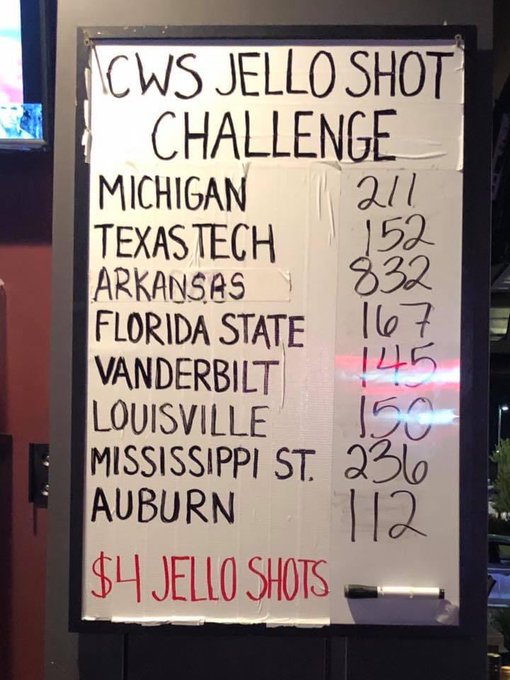 CWS JELLO SHOT
CHALLENGE
MICHIGAN 211
TEXAS TECH 152
ARKANSAS 832
FLORIDA STATE 167
VANDERBILT 145
LOUISVILLE 150
MISSISSIPPI ST. 236
AUBURN 112
$4 JELLO SHOTS